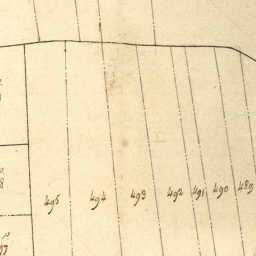 495 494 493 492 491 490 489